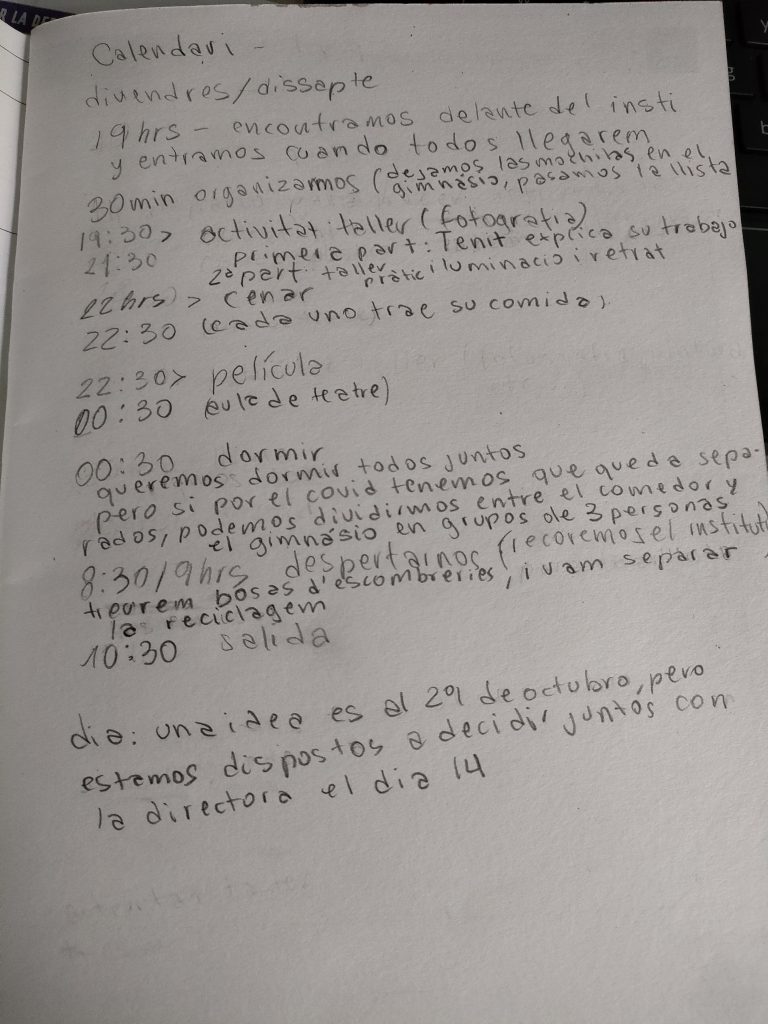 R LA DE
Calendari -
divendres/dissapte
19hrs - encontramos delante del insti
y entramos cuando todos llegarem
30min organizarmos (dejamos las mochilas en el
gimnásio, pasamos la llista
19:30> activitat taller (fotografia)
21:30 primera part: Tenit explica su trabajo
2ª part: taller pràtic iluminacio i retrat
22hrs > cenar
22:30 (cada uno trae su comida)
22:30> película
00:30 (aula de teatre)
00:30 dormir
queremos dormir todos juntos
pero si por el covid tenemos que queda sepa-
rados, podemos dividirmos entre el comedor y
el gimnásio en grupos de 3 personas
8:30/9hrs despertarnos (recoremos el institut
treurem bosas d'escombreries, i vam separar
la reciclagem
10:30 salida
dia: una idea es al 29 de octubro, pero
estamos dispostos a decidir juntos con
la directora el dia 14